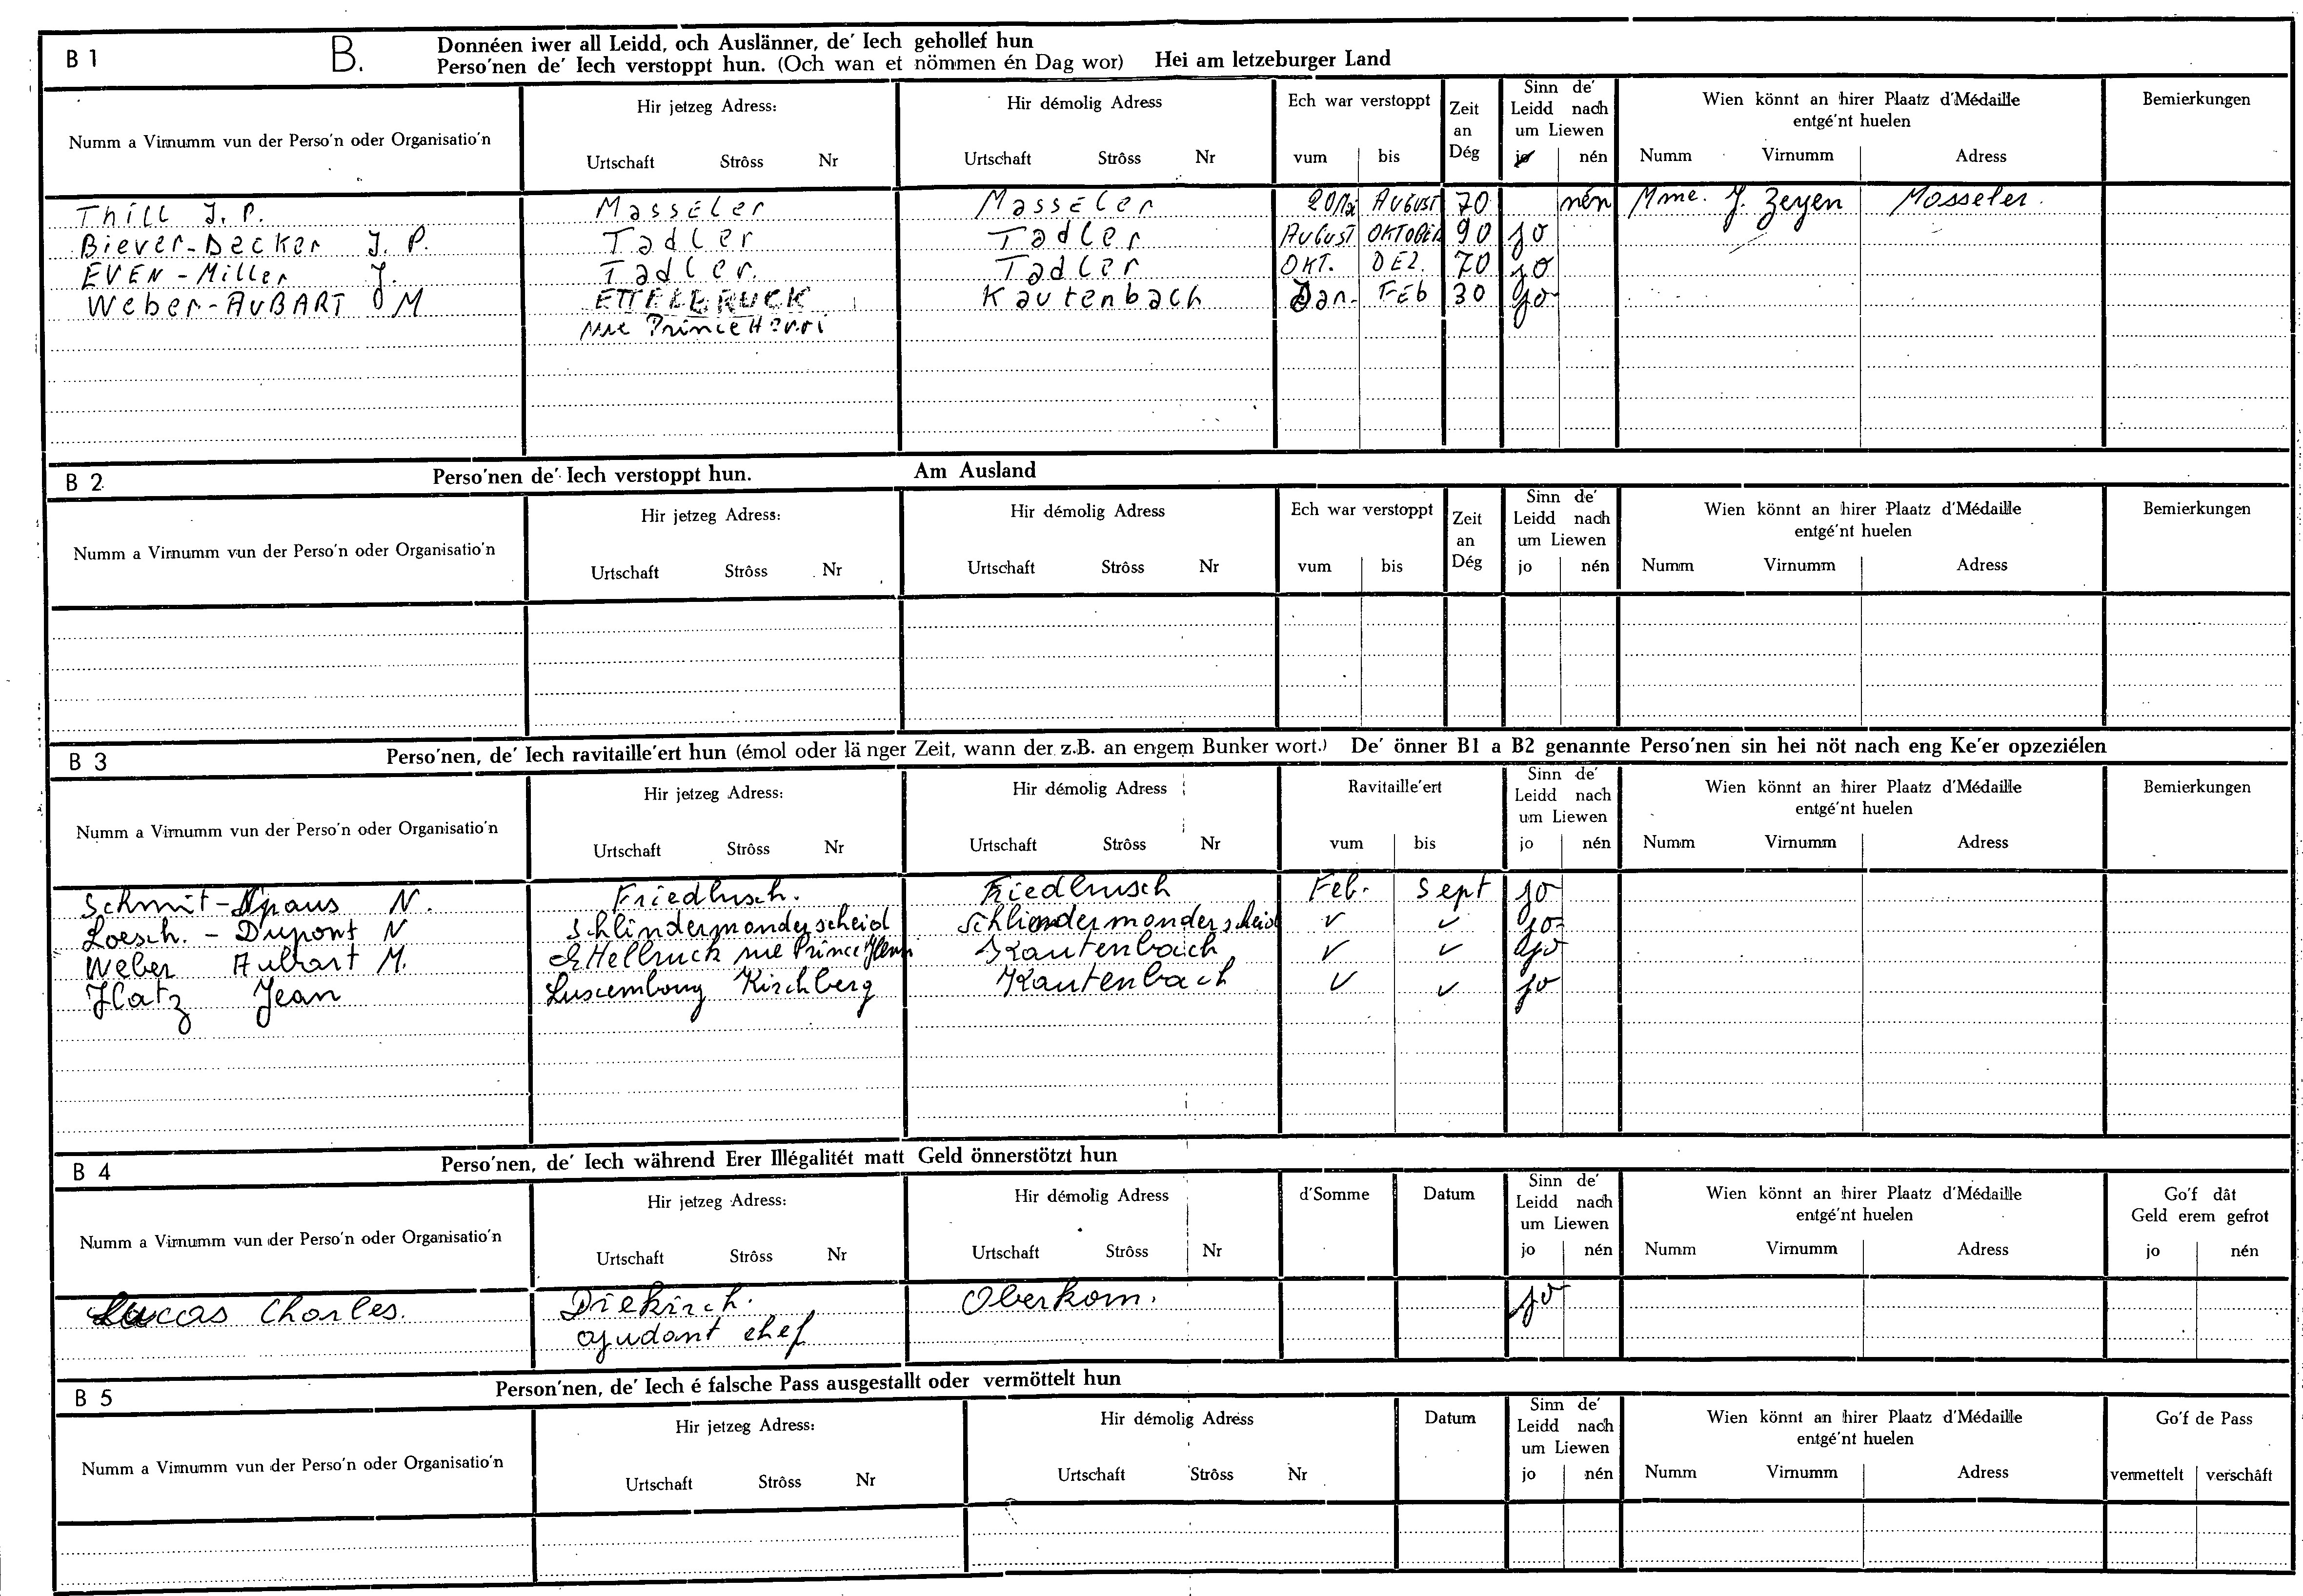 B 1 B. Donnéen iwer all Leidd, och Auslänner, de' Iech gehollef hun
Perso'nen de' Iech verstoppt hun. (Och wan et nömmen én Dag wor) Hei am letzeburger Land
Numm a Virnumm vun der Perso'n oder Organisatio'n
Hir jetzeg Adress:
Urtschaft Strôss Nr
Hir démolig Adress
Urtschaft Strôss Nr
Ech war verstoppt
vum bis
Zeit
an
Dég
Sinn de'
Leidd nach
um Liewen
jo nén
Wien könnt an hirer Plaatz d'Médaille
entgé'nt huelen
Numm Virnumm Adress
Bemierkungen
Thill J. P. Masseler Masseler AUGUST 70 nén Mme. J. Zeyen Masseler.
Biever-Decker J. P. Tadler Tadler AUGUST OKTOBER 90 jo
EVEN-Miller J. Tadler. Tadler OKT. DEZ. 70 jo
Weber-AUBART M ETTELBRUCK Kautenbach Jan. FEB 30 jo
rue Prince Henri
B 2 Perso'nen de' Iech verstoppt hun. Am Ausland
Numm a Virnumm vun der Perso'n oder Organisatio'n
Hir jetzeg Adress:
Urtschaft Strôss Nr
Hir démolig Adress
Urtschaft Strôss Nr
Ech war verstoppt
vum bis
Zeit
an
Dég
Sinn de'
Leidd nach
um Liewen
jo nén
Wien könnt an hirer Plaatz d'Médaille
entgé'nt huelen
Numm Virnumm Adress
Bemierkungen
B 3 Perso'nen, de' Iech ravitaille'ert hun (émol oder länger Zeit, wann der z.B. an engem Bunker wort.) De' önner B1 a B2 genannte Perso'nen sin hei nöt nach eng Ke'er opzeziélen
Numm a Virnumm vun der Perso'n oder Organisatio'n
Hir jetzeg Adress:
Urtschaft Strôss Nr
Hir démolig Adress
Urtschaft Strôss Nr
Ravitaille'ert
vum bis
Sinn de'
Leidd nach
um Liewen
jo nén
Wien könnt an hirer Plaatz d'Médaille
entgé'nt huelen
Numm Virnumm Adress
Bemierkungen
Schmit- N. Friedbusch. Friedbusch Feb. Sept jo
Loesch. - Dupont N Schlindermanderscheid Schlindermanderscheid ✓ ✓ jo
Weber Aubart M. Ettelbruck rue Prince Henri Kautenbach ✓ ✓ jo
Jean Luxembourg Kirchberg Kautenbach ✓ ✓ jo
B 4 Perso'nen, de' Iech während Erer Illégalitét matt Geld önnerstötzt hun
Numm a Virnumm vun der Perso'n oder Organisatio'n
Hir jetzeg Adress:
Urtschaft Strôss Nr
Hir démolig Adress
Urtschaft Strôss Nr
d'Somme Datum
Sinn de'
Leidd nach
um Liewen
jo nén
Wien könnt an hirer Plaatz d'Médaille
entgé'nt huelen
Numm Virnumm Adress
Go'f dât
Geld erem gefrot
jo nén
Lucas Charles. Diekirch. Oberkorn. jo
ajudant chef
B 5 Person'nen, de' Iech é falsche Pass ausgestallt oder vermöttelt hun
Numm a Virnumm vun der Perso'n oder Organisatio'n
Hir jetzeg Adress:
Urtschaft Strôss Nr
Hir démolig Adress
Urtschaft Strôss Nr
Datum
Sinn de'
Leidd nach
um Liewen
jo nén
Wien könnt an hirer Plaatz d'Médaille
entgé'nt huelen
Numm Virnumm Adress
Go'f de Pass
vermettelt verschâft